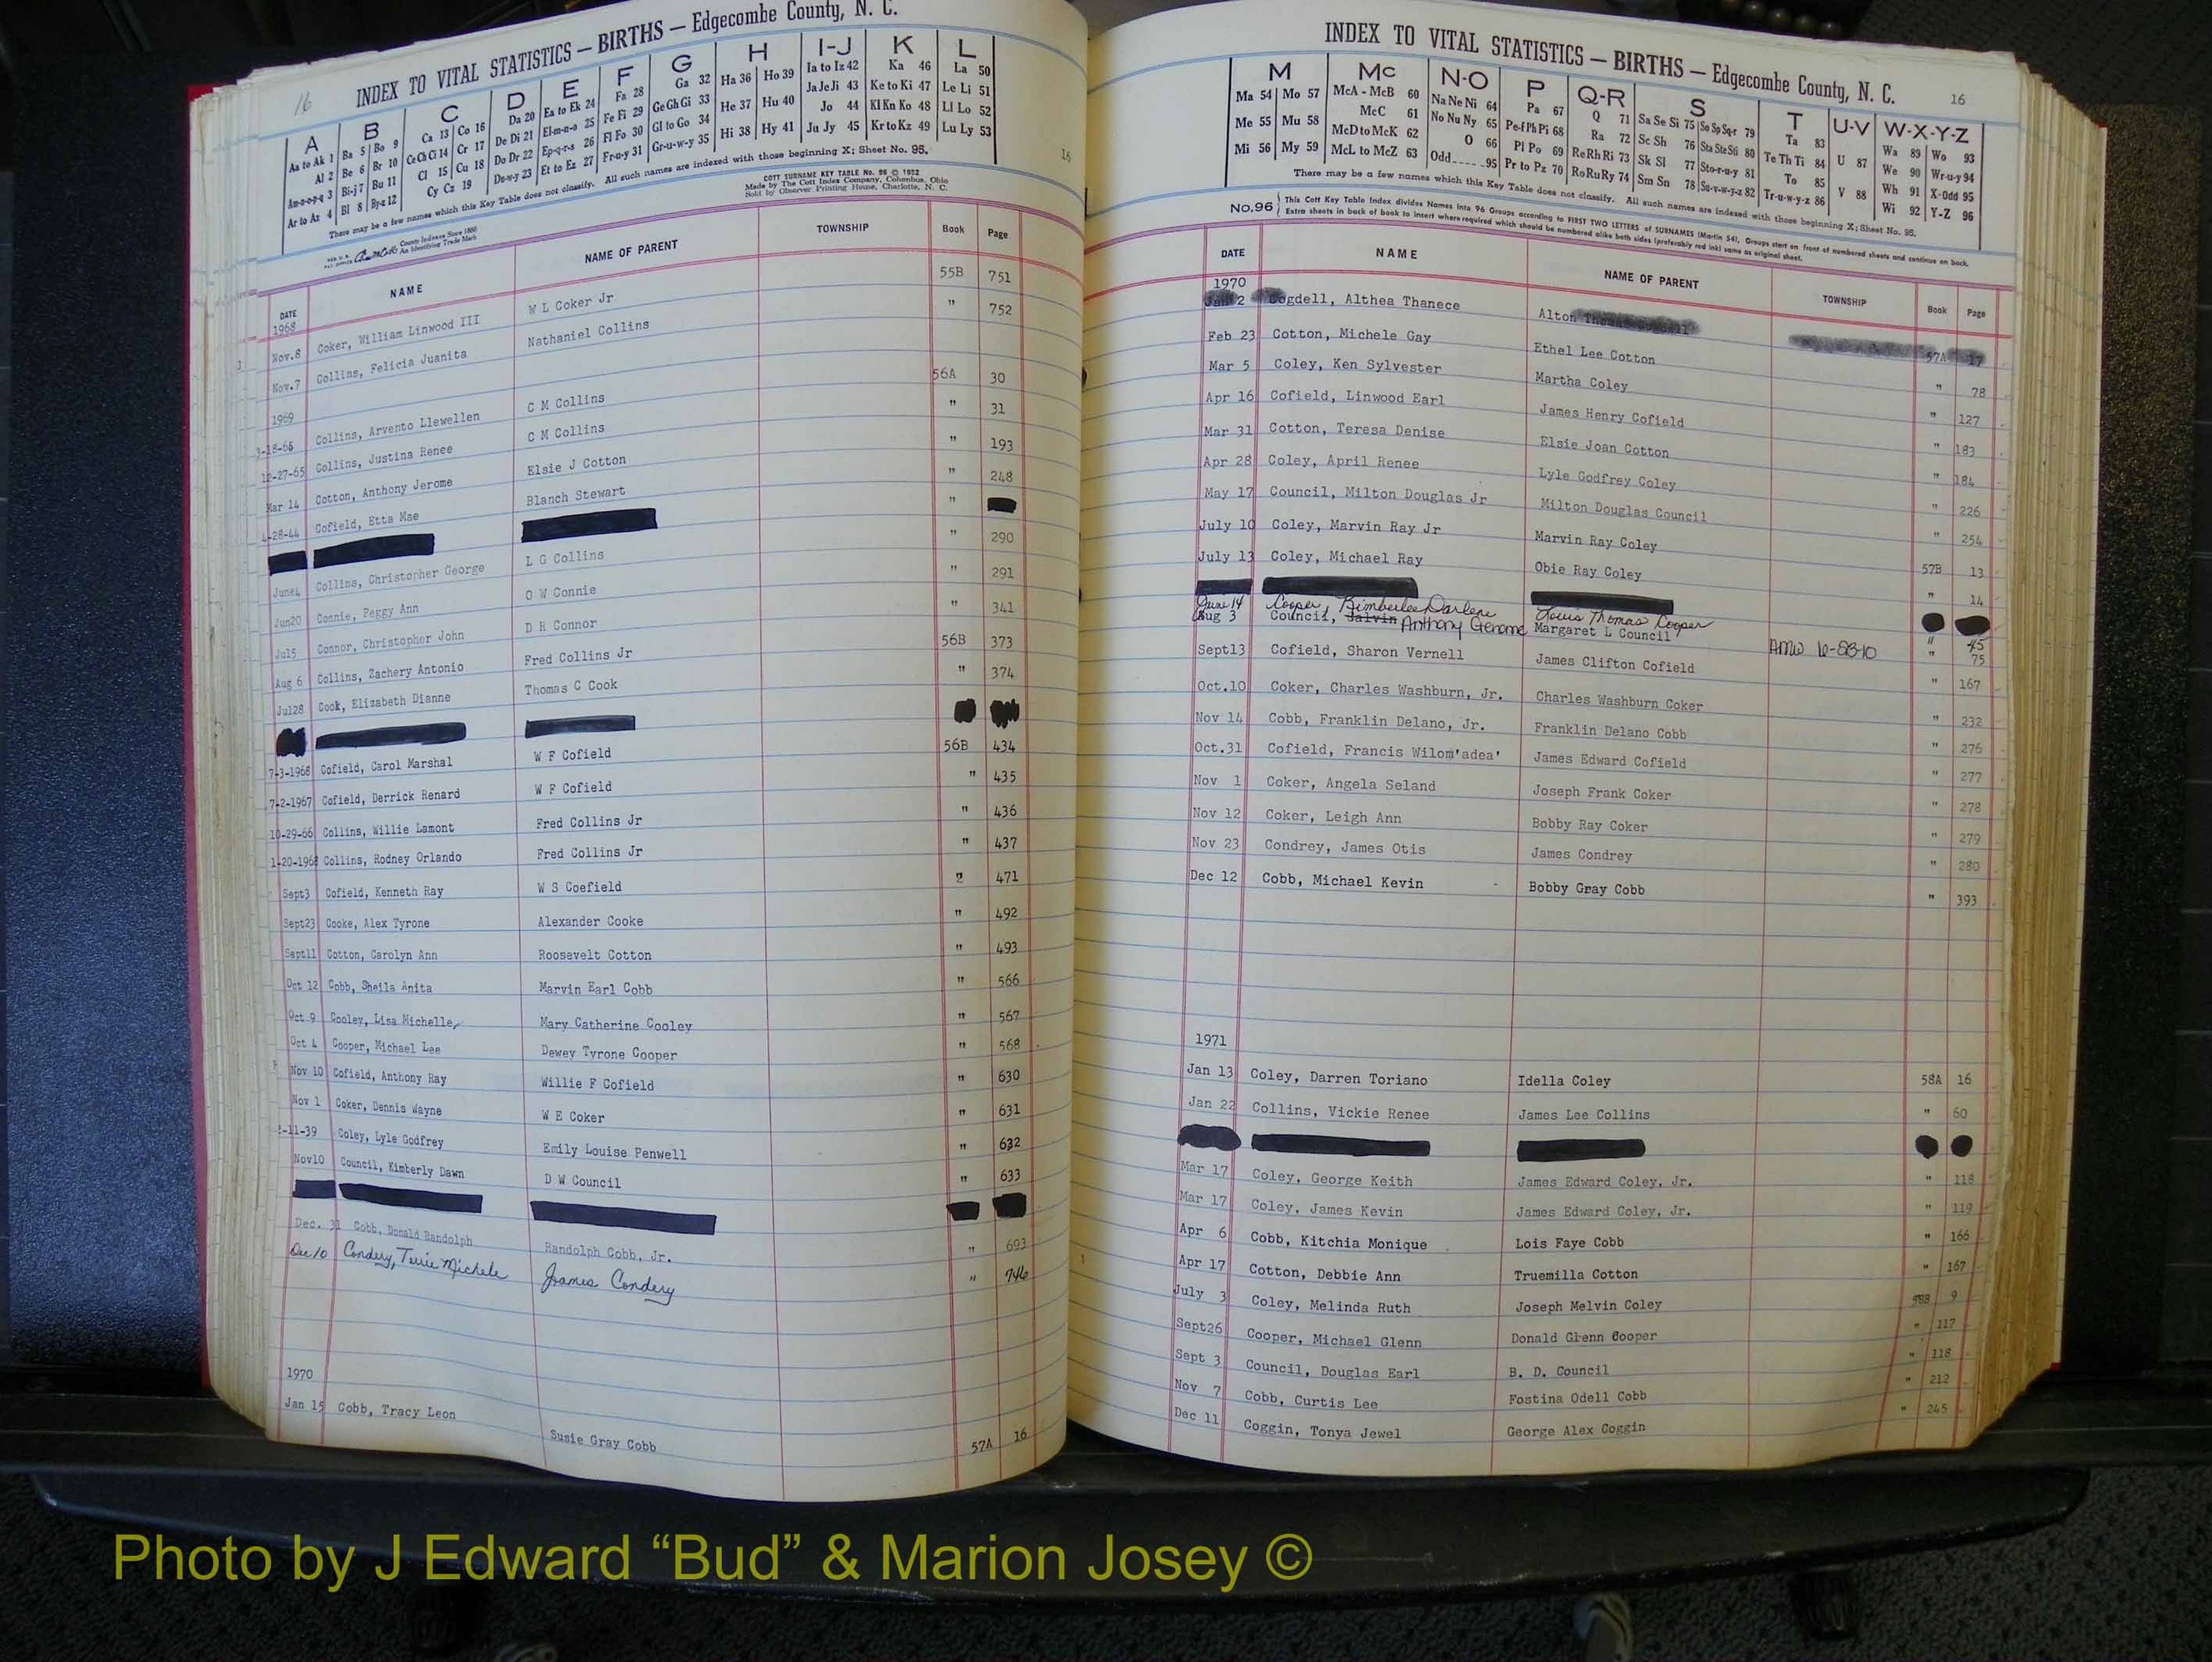 16
INDEX TO VITAL STATISTICS — BIRTHS — Edgecombe County, N. C.
A B C D E F G H I-J K L
Aa to Ak 1 Ba 5 Bo 9 Ca 13 Co 16 Da 20 Ea to Ek 24 Fa 28 Ga 32 Ha 36 Ho 39 Ia to Iz 42 Ka 46 La 50
Al 2 Be 6 Br 10 Ce Ch Ci 14 Cr 17 De Di 21 El-m-n-o 25 Fe Fi 29 Ge Gh Gi 33 He 37 Hu 40 Ja Je Ji 43 Ke to Ki 47 Le Li 51
Am-n-o-p-q 3 Bi-j 7 Bu 11 Cl 15 Cu 18 Do Dr 22 Ep-q-r-s 26 Fl Fo 30 Gl to Go 34 Hi 38 Hy 41 Jo 44 Kl Kn Ko 48 Ll Lo 52
Ar to Az 4 Bl 8 By-z 12 Cy Cz 19 De-w-y 23 Et to Ez 27 Fr-u-y 31 Gr-u-w-y 35 Ju Jy 45 Kr to Kz 49 Lu Ly 53
There may be a few names which this Key Table does not classify. All such names are indexed with those beginning X; Sheet No. 95.
16
COTT SURNAME KEY TABLE No. 96 © 1952
Made by The Cott Index Company, Columbus, Ohio
Sold by Observer Printing House, Charlotte, N. C.
County Indexes Since 1888
An Identifying Trade Mark
DATE NAME NAME OF PARENT TOWNSHIP Book Page
1968
Nov.8 Coker, William Linwood III W L Coker Jr 55B 751
Nov.7 Collins, Felicia Juanita Nathaniel Collins " 752
1969
3-18-65 Collins, Arvento Llewellen C M Collins 56A 30
12-27-65 Collins, Justina Renee C M Collins " 31
Mar 14 Cotton, Anthony Jerome Elsie J Cotton " 193
4-28-44 Cofield, Etta Mae Blanch Stewart " 248
"
June4 Collins, Christopher George L G Collins " 290
Jun20 Connie, Peggy Ann O W Connie " 291
Jul5 Connor, Christopher John D R Connor " 341
Aug 6 Collins, Zachery Antonio Fred Collins Jr 56B 373
Jul28 Cook, Elizabeth Dianne Thomas C Cook " 374
7-3-1968 Cofield, Carol Marshal W F Cofield 56B 434
7-2-1967 Cofield, Derrick Renard W F Cofield " 435
10-29-66 Collins, Willie Lamont Fred Collins Jr " 436
1-20-1968 Collins, Rodney Orlando Fred Collins Jr " 437
Sept3 Cofield, Kenneth Ray W S Coefield " 471
Sept23 Cooke, Alex Tyrone Alexander Cooke " 492
Sept11 Cotton, Carolyn Ann Roosevelt Cotton " 493
Oct 12 Cobb, Sheila Anita Marvin Earl Cobb " 566
Oct 9 Cooley, Lisa Michelle Mary Catherine Cooley " 567
Oct 4 Cooper, Michael Lee Dewey Tyrone Cooper " 568
Nov 10 Cofield, Anthony Ray Willie F Cofield " 630
Nov 1 Coker, Dennis Wayne W E Coker " 631
-11-39 Coley, Lyle Godfrey Emily Louise Penwell " 632
Nov10 Council, Kimberly Dawn D W Council " 633
Dec. 31 Cobb, Donald Randolph Randolph Cobb, Jr. " 693
Dec 10 Condery, Terrie Michele James Condery " 746
1970
Jan 15 Cobb, Tracy Leon Susie Gray Cobb 57A 16
INDEX TO VITAL STATISTICS — BIRTHS — Edgecombe County, N. C. 16
M Mc N-O P Q-R S T U-V W-X-Y-Z
Ma 54 Mo 57 McA - McB 60 Na Ne Ni 64 Pa 67 Q 71 Sa Se Si 75 So Sp Sq-r 79 Ta 83 Wa 89 Wo 93
Me 55 Mu 58 McC 61 No Nu Ny 65 Pe-f Ph Pi 68 Ra 72 Sc Sh 76 Sta Ste Sti 80 Te Th Ti 84 U 87 We 90 Wr-u-y 94
Mi 56 My 59 McD to McK 62 O 66 Pl Po 69 Re Rh Ri 73 Sk Sl 77 Sto-r-u-y 81 To 85 V 88 Wh 91 X-Odd 95
McL to McZ 63 Odd 95 Pr to Pz 70 Ro Ru Ry 74 Sm Sn 78 Su-v-w-y-z 82 Tr-u-w-y-z 86 Wi 92 Y-Z 96
There may be a few names which this Key Table does not classify. All such names are indexed with those beginning X; Sheet No. 95.
No.96 This Cott Key Table Index divides Names into 96 Groups according to FIRST TWO LETTERS of SURNAMES (Martin 54). Groups start on front of numbered sheets and continue on back.
Extra sheets in back of book to insert where required which should be numbered alike both sides (preferably red ink) same as original sheet.
DATE NAME NAME OF PARENT TOWNSHIP Book Page
1970
Jan 2 Cogdell, Althea Thanece Alton 57A 17
Feb 23 Cotton, Michele Gay Ethel Lee Cotton " 78
Mar 5 Coley, Ken Sylvester Martha Coley " 127
Apr 16 Cofield, Linwood Earl James Henry Cofield " 183
Mar 31 Cotton, Teresa Denise Elsie Joan Cotton " 184
Apr 28 Coley, April Renee Lyle Godfrey Coley " 226
May 17 Council, Milton Douglas Jr Milton Douglas Council " 254
July 10 Coley, Marvin Ray Jr Marvin Ray Coley 57B 13
July 13 Coley, Michael Ray Obie Ray Coley " 14
June 14 Cooper, Kimberlee Darlene Louis Thomas Cooper " 45
Aug 3 Council, Jalvin Anthony Genome Margaret L Council AMW 10-28-10 " 75
Sept13 Cofield, Sharon Vernell James Clifton Cofield " 167
Oct.10 Coker, Charles Washburn, Jr. Charles Washburn Coker " 232
Nov 14 Cobb, Franklin Delano, Jr. Franklin Delano Cobb " 276
Oct.31 Cofield, Francis Wilom'adea' James Edward Cofield " 277
Nov 1 Coker, Angela Seland Joseph Frank Coker " 278
Nov 12 Coker, Leigh Ann Bobby Ray Coker " 279
Nov 23 Condrey, James Otis James Condrey " 280
Dec 12 Cobb, Michael Kevin Bobby Gray Cobb " 393
1971
Jan 13 Coley, Darren Toriano Idella Coley 58A 16
Jan 22 Collins, Vickie Renee James Lee Collins " 60
Mar 17 Coley, George Keith James Edward Coley, Jr. " 118
Mar 17 Coley, James Kevin James Edward Coley, Jr. " 119
Apr 6 Cobb, Kitchia Monique Lois Faye Cobb " 166
Apr 17 Cotton, Debbie Ann Truemilla Cotton " 167
July 3 Coley, Melinda Ruth Joseph Melvin Coley 58B 9
Sept26 Cooper, Michael Glenn Donald Glenn Cooper " 117
Sept 3 Council, Douglas Earl B. D. Council " 118
Nov 7 Cobb, Curtis Lee Fostina Odell Cobb " 212
Dec 11 Coggin, Tonya Jewel George Alex Coggin " 245
Photo by J Edward “Bud” & Marion Josey ©